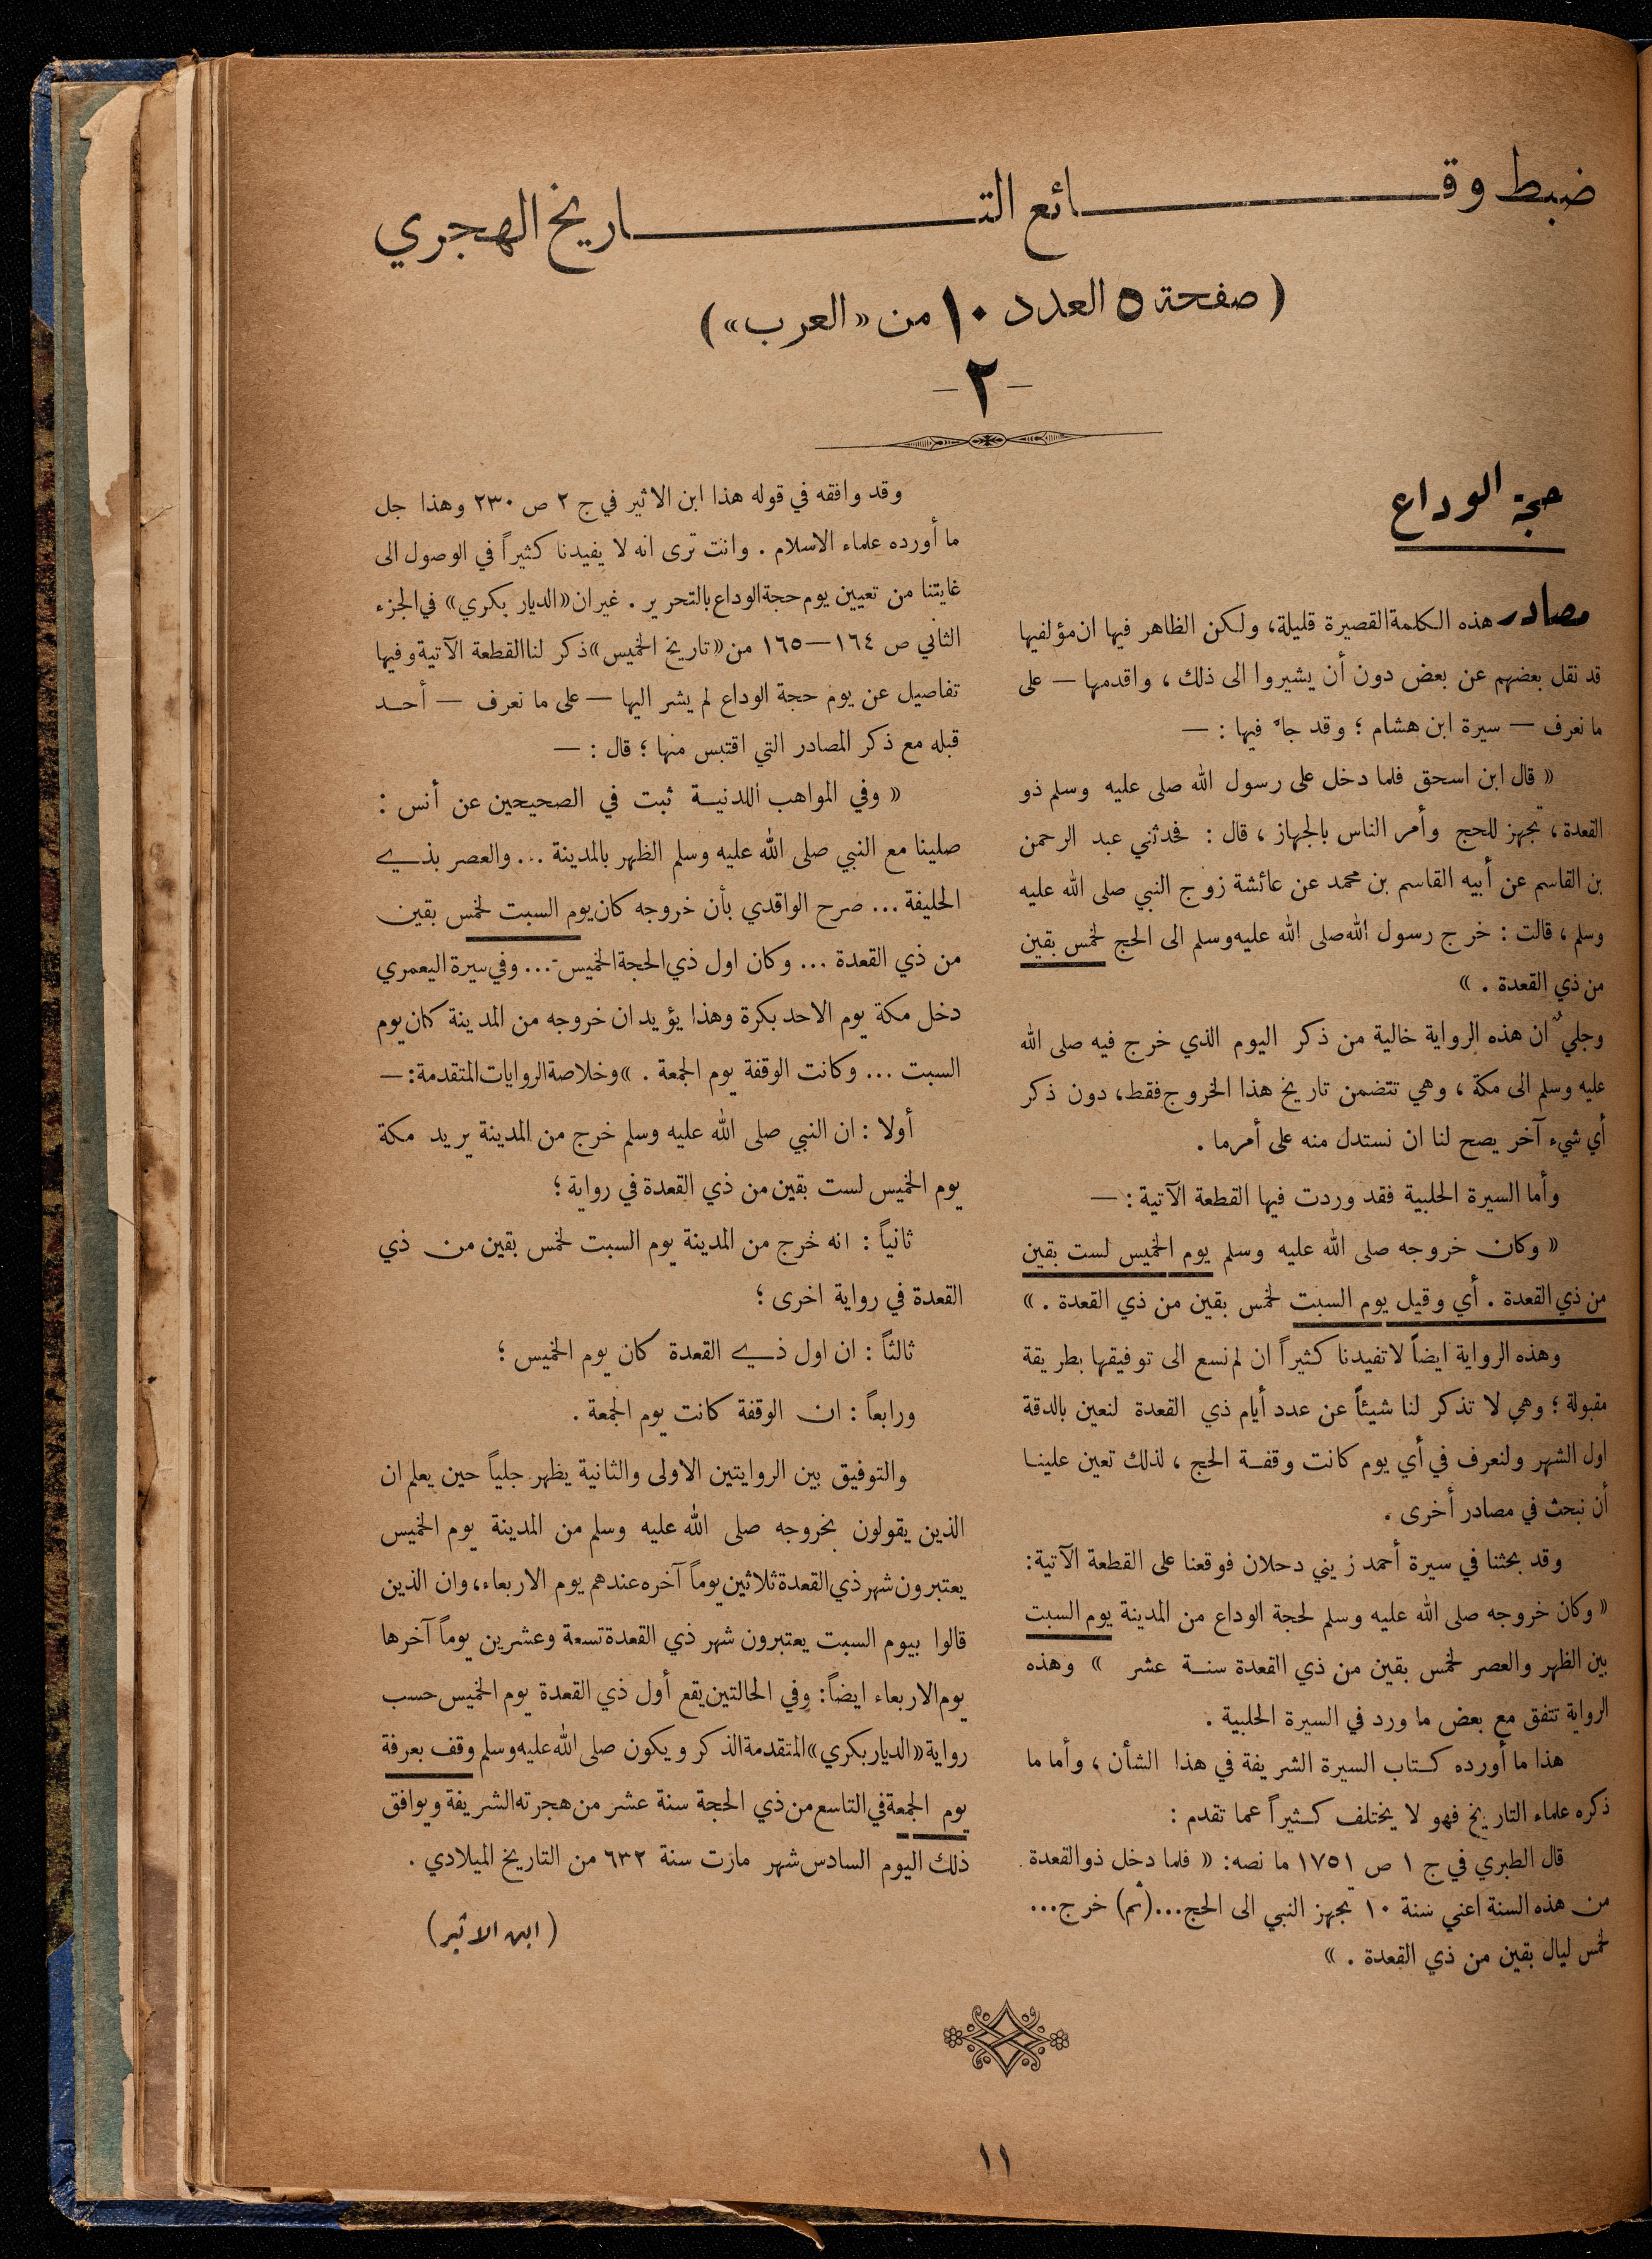 ضبط وقائع التاريخ الهجري
(صفحة ٥ العدد ١٠ من «العرب»)
– ٢ –
حجة الوداع
مصادر هذه الكلمة القصيرة قليلة، ولكن الظاهر فيها ان مؤلفيها
قد نقل بعضهم عن بعض دون أن يشيروا الى ذلك، واقدمها — على
ما نعرف — سيرة ابن هشام؛ وقد جاء فيها: —
« قال ابن اسحق فلما دخل على رسول الله صلى عليه وسلم ذو
القعدة، تجهز للحج وأمر الناس بالجهاز، قال: فحدثني عبد الرحمن
بن القاسم عن أبيه القاسم بن محمد عن عائشة زوج النبي صلى الله عليه
وسلم، قالت: خرج رسول الله صلى الله عليه وسلم الى الحج لخمس بقين
من ذي القعدة. »
وجليٌ ان هذه الرواية خالية من ذكر اليوم الذي خرج فيه صلى الله
عليه وسلم الى مكة، وهي تتضمن تاريخ هذا الخروج فقط، دون ذكر
أي شيء آخر يصح لنا ان نستدل منه على أمر ما.
وأما السيرة الحلبية فقد وردت فيها القطعة الآتية: —
« وكان خروجه صلى الله عليه وسلم يوم الخميس لست بقين
من ذي القعدة. أي وقيل يوم السبت لخمس بقين من ذي القعدة. »
وهذه الرواية ايضاً لا تفيدنا كثيراً ان لم نسع الى توفيقها بطريقة
مقبولة؛ وهي لا تذكر لنا شيئاً عن عدد أيام ذي القعدة لنعين بالدقة
اول الشهر ولنعرف في أي يوم كانت وقفة الحج، لذلك تعين علينا
أن نبحث في مصادر أخرى.
وقد بحثنا في سيرة أحمد زيني دحلان فوقعنا على القطعة الآتية:
« وكان خروجه صلى الله عليه وسلم لحجة الوداع من المدينة يوم السبت
بين الظهر والعصر لخمس بقين من ذي القعدة سنة عشر » وهذه
الرواية تتفق مع بعض ما ورد في السيرة الحلبية.
هذا ما أورده كتاب السيرة الشريفة في هذا الشأن، وأما ما
ذكره علماء التاريخ فهو لا يختلف كثيراً عما تقدم:
قال الطبري في ج ١ ص ١٧٥١ ما نصه: « فلما دخل ذو القعدة
من هذه السنة اعني سنة ١٠ تجهز النبي الى الحج...(ثم) خرج...
لخمس ليال بقين من ذي القعدة. »
وقد وافقه في قوله هذا ابن الاثير في ج ٢ ص ٢٣٠ وهذا جل
ما أورده علماء الاسلام. وانت ترى انه لا يفيدنا كثيراً في الوصول الى
غايتنا من تعيين يوم حجة الوداع بالتحرير. غير ان «الديار بكري» في الجزء
الثاني ص ١٦٤—١٦٥ من «تاريخ الخميس» ذكر لنا القطعة الآتية وفيها
تفاصيل عن يوم حجة الوداع لم يشر اليها — على ما نعرف — أحد
قبله مع ذكر المصادر التي اقتبس منها؛ قال: —
« وفي المواهب اللدنية ثبت في الصحيحين عن أنس:
صلينا مع النبي صلى الله عليه وسلم الظهر بالمدينة ... والعصر بذي
الحليفة ... صرح الواقدي بأن خروجه كان يوم السبت لخمس بقين
من ذي القعدة ... وكان اول ذي الحجة الخميس ... وفي سيرة اليعمري
دخل مكة يوم الاحد بكرة وهذا يؤيد ان خروجه من المدينة كان يوم
السبت ... وكانت الوقفة يوم الجمعة. » وخلاصة الروايات المتقدمة: —
أولا: ان النبي صلى الله عليه وسلم خرج من المدينة يريد مكة
يوم الخميس لست بقين من ذي القعدة في رواية؛
ثانياً: انه خرج من المدينة يوم السبت لخمس بقين من ذي
القعدة في رواية اخرى؛
ثالثاً: ان اول ذي القعدة كان يوم الخميس؛
ورابعاً: ان الوقفة كانت يوم الجمعة.
والتوفيق بين الروايتين الاولى والثانية يظهر جلياً حين يعلم ان
الذين يقولون بخروجه صلى الله عليه وسلم من المدينة يوم الخميس
يعتبرون شهر ذي القعدة ثلاثين يوماً آخره عندهم يوم الاربعاء، وان الذين
قالوا بيوم السبت يعتبرون شهر ذي القعدة تسعة وعشرين يوماً آخرها
يوم الاربعاء ايضاً: وفي الحالتين يقع أول ذي القعدة يوم الخميس حسب
رواية «الديار بكري» المتقدمة الذكر ويكون صلى الله عليه وسلم وقف بعرفة
يوم الجمعة في التاسع من ذي الحجة سنة عشر من هجرته الشريفة ويوافق
ذلك اليوم السادس شهر مارت سنة ٦٣٢ من التاريخ الميلادي.
(ابن الاثير)
١١